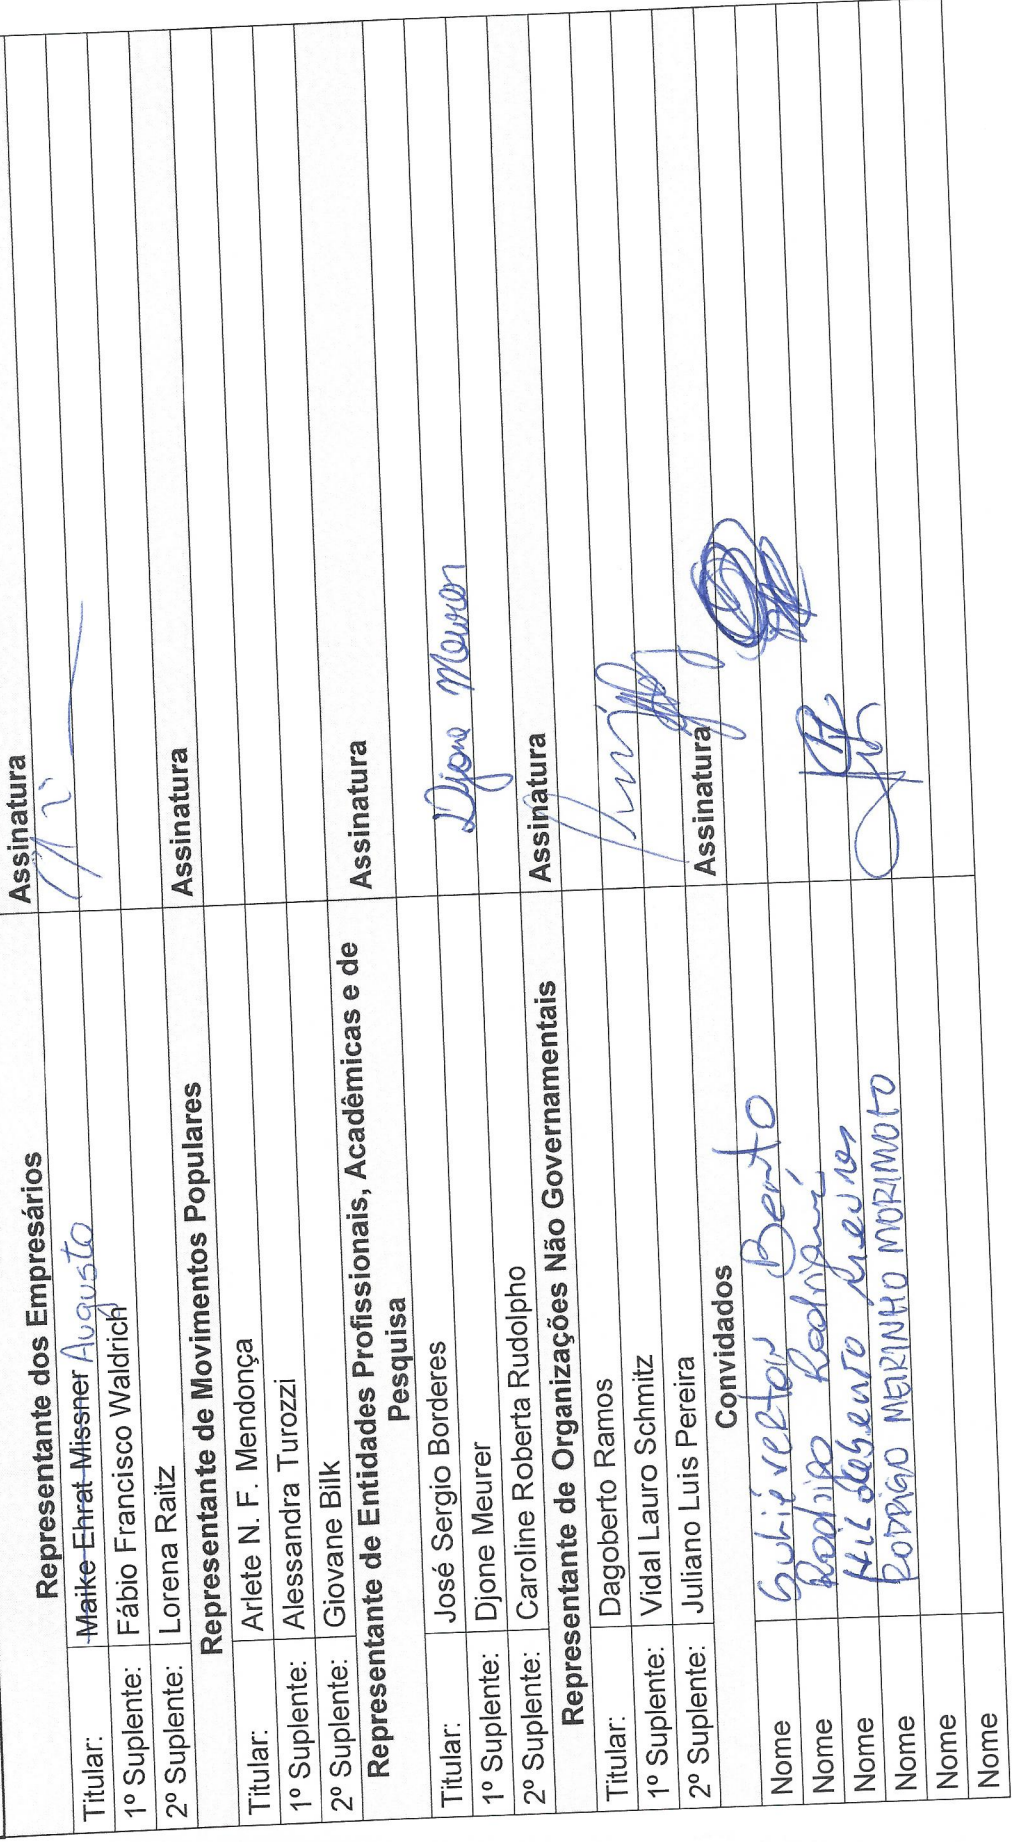 Representante dos Empresários Assinatura
Titular: Maike Ehrat Missner Augusto
1º Suplente: Fábio Francisco Waldrich
2º Suplente: Lorena Raitz
Representante de Movimentos Populares Assinatura
Titular: Arlete N. F. Mendonça
1º Suplente: Alessandra Turozzi
2º Suplente: Giovane Bilk
Representante de Entidades Profissionais, Acadêmicas e de Assinatura
Pesquisa
Titular: José Sergio Borderes
1º Suplente: Djone Meurer Djone Meurer
2º Suplente: Caroline Roberta Rudolpho
Representante de Organizações Não Governamentais Assinatura
Titular: Dagoberto Ramos
1º Suplente: Vidal Lauro Schmitz
2º Suplente: Juliano Luis Pereira
Convidados Assinatura
Nome Bento
Nome Rodrigo
Nome Meurer
Nome RODRIGO MEIRINHO MORIMOTO
Nome
Nome